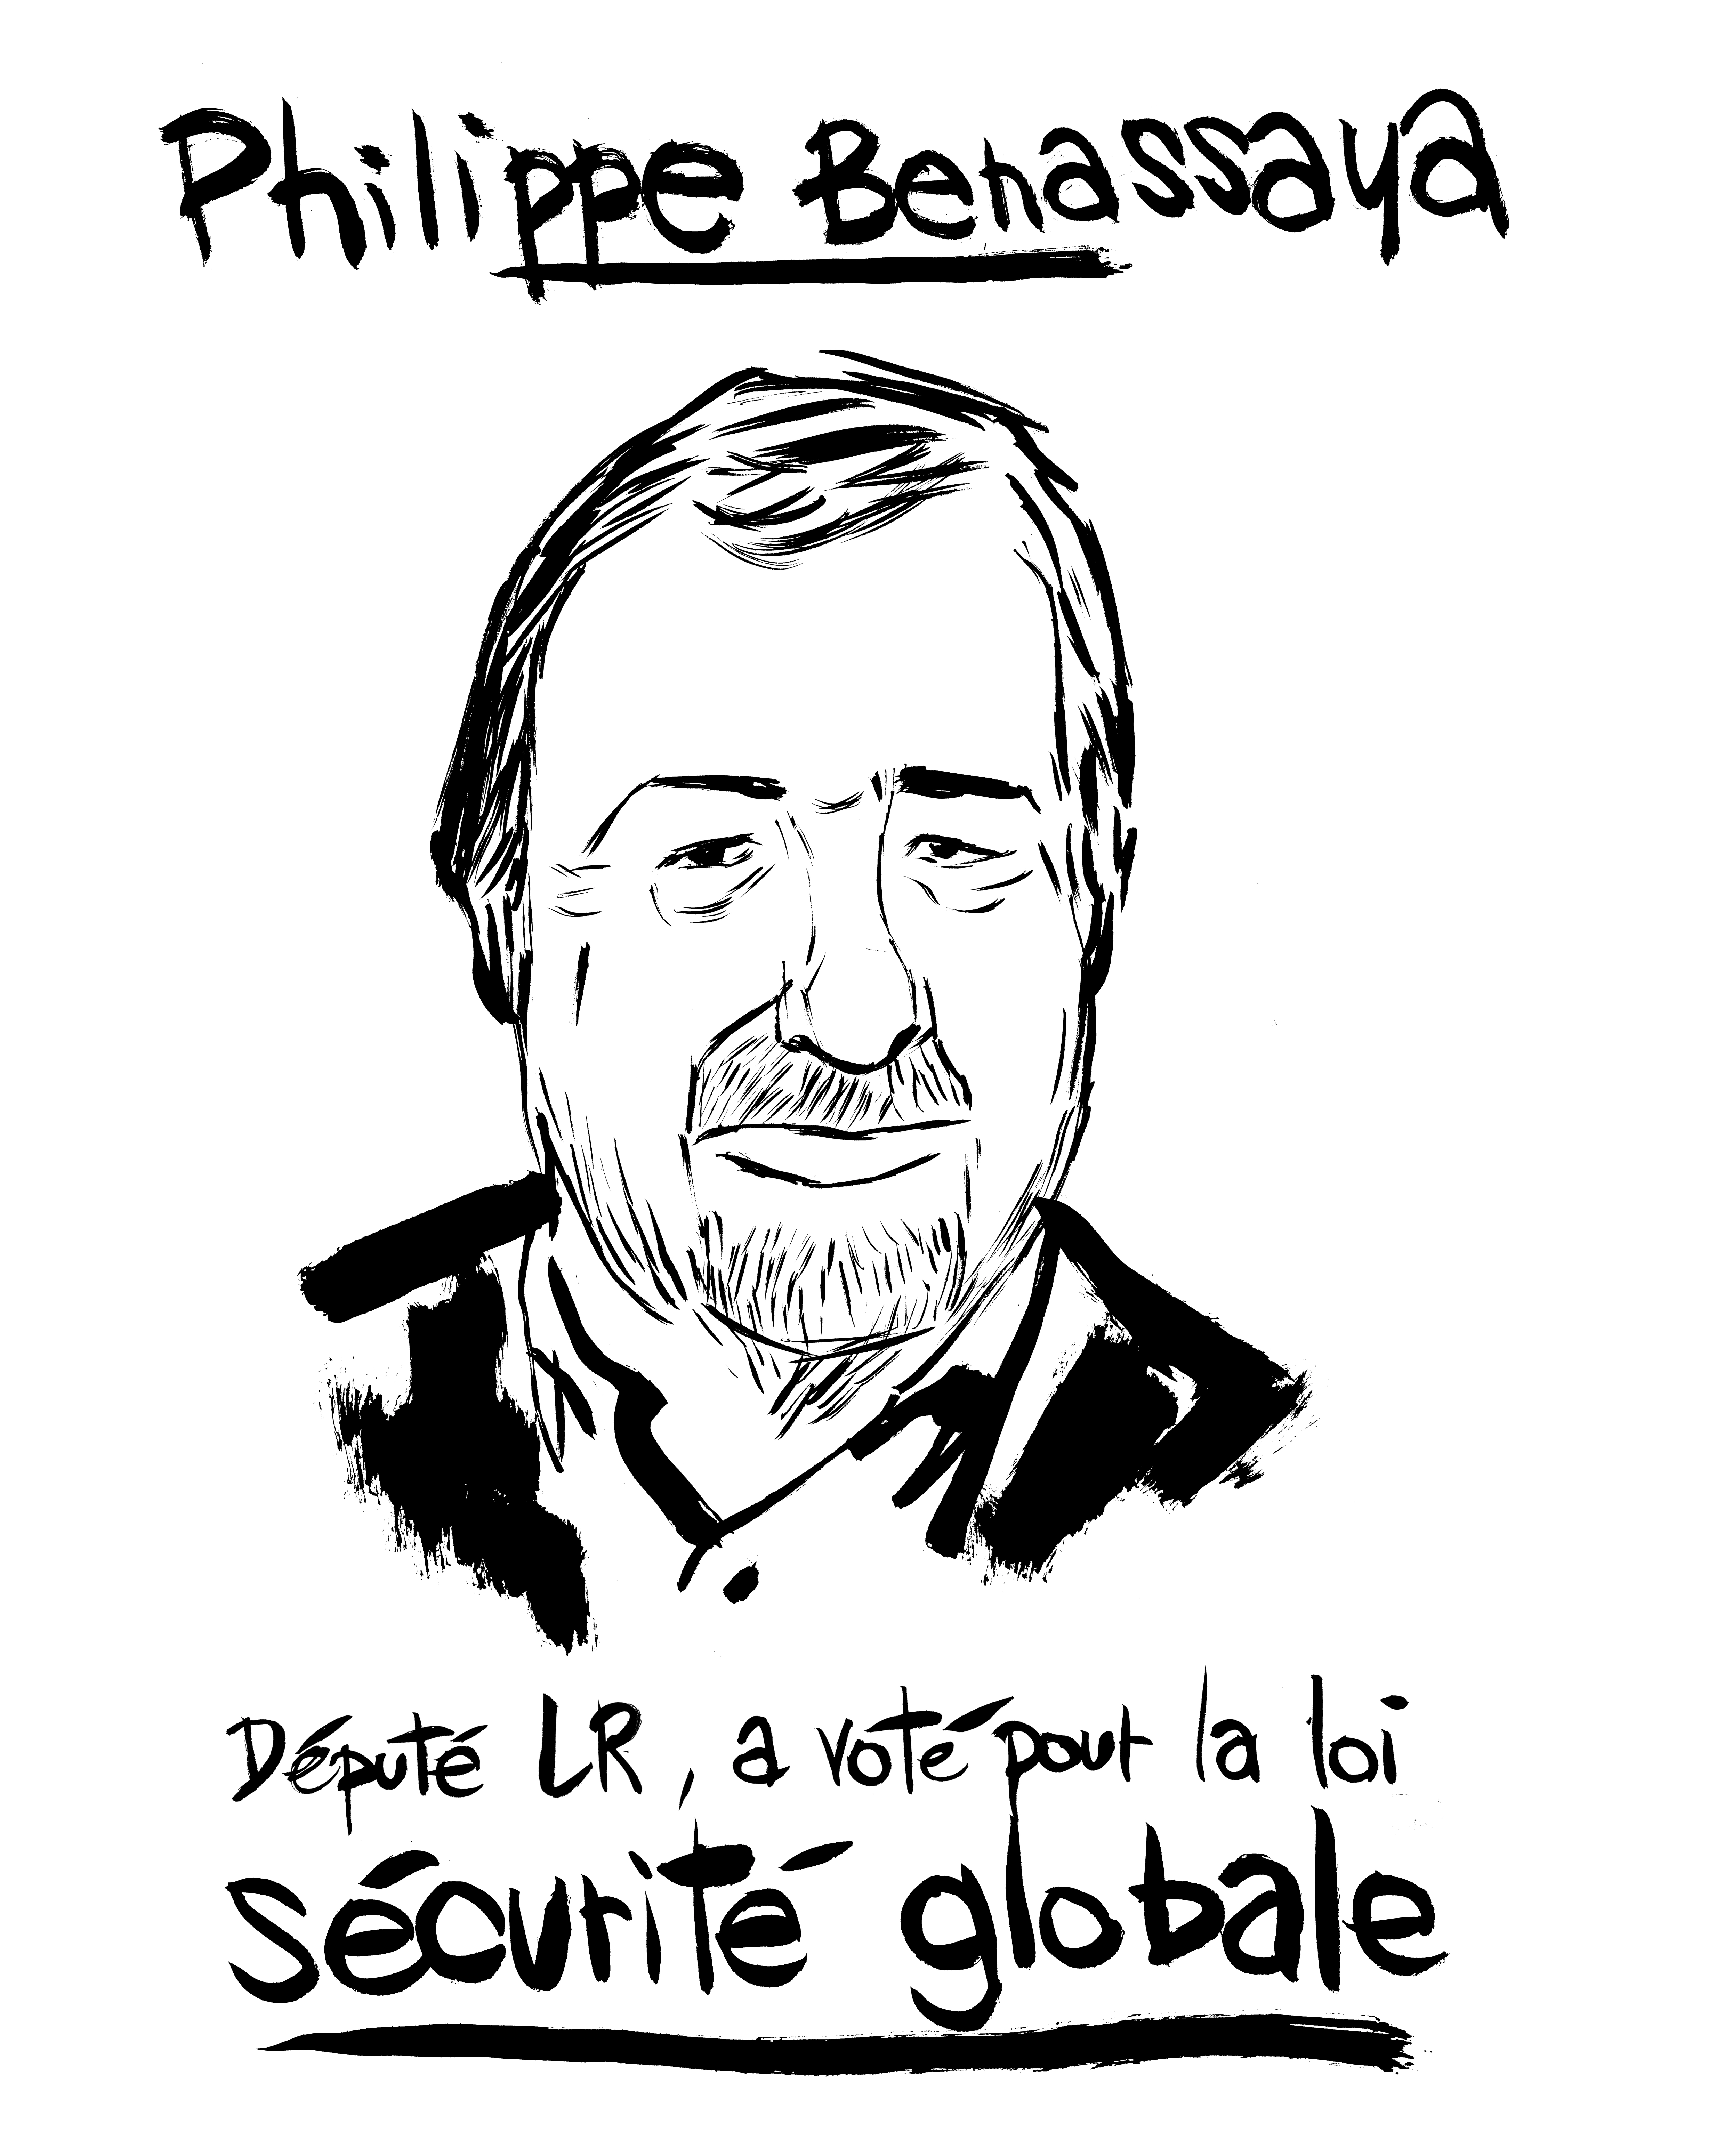 Philippe Benassaya
Député LR, a voté pour la loi
sécurité globale